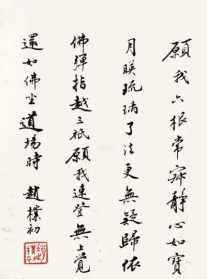 願我六根常寂靜心如寶
月映琉璃了法更無疑歸依
佛彈指越三祇願我速登無上覺
還如佛坐道場時 趙樸初